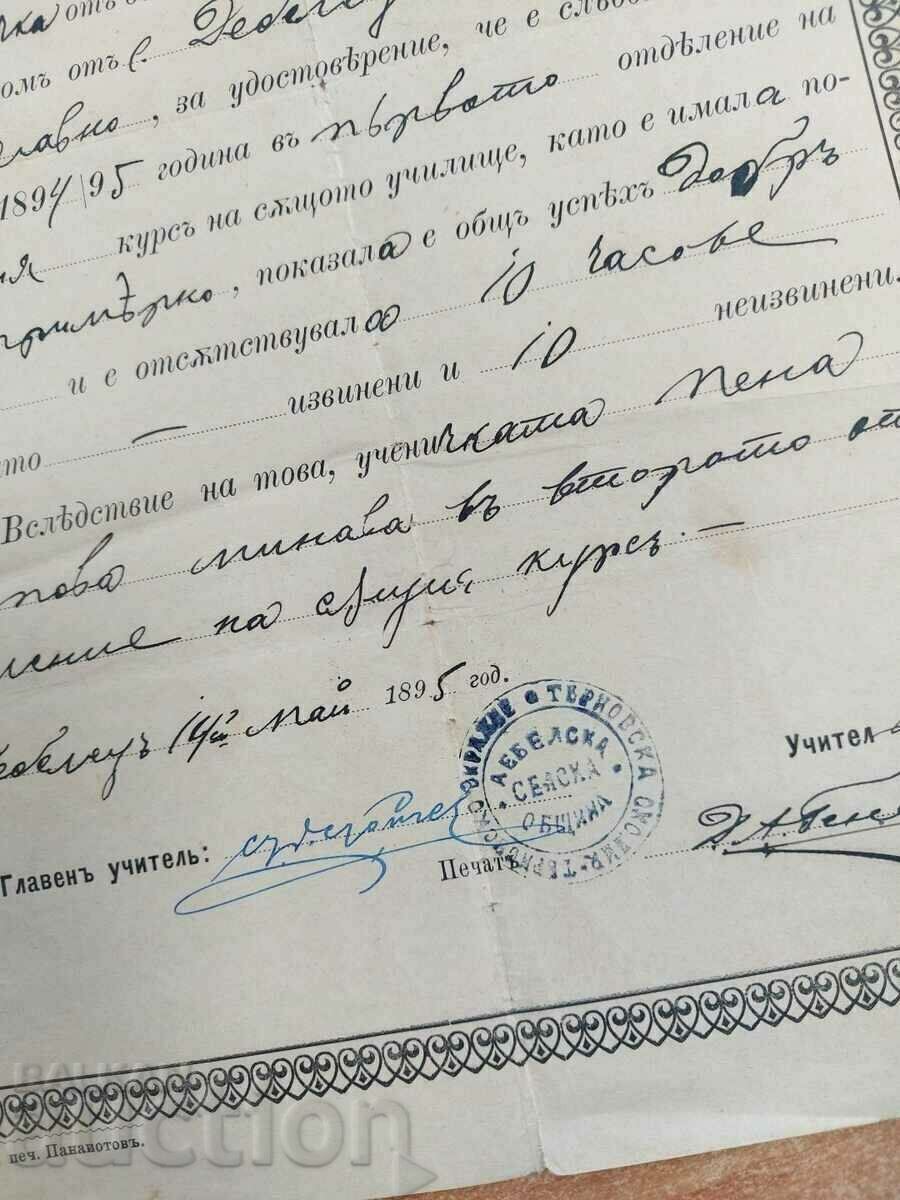 чка отъ
омъ отъ с. Дебелец
славно, за удостовѣрение, че е слѣд
1894/95 година въ първото отдѣление на
курсъ на сѫщото училище, като е имала по-
примѣрно, показала е общъ успѣхъ добръ
и е отсѫтствувала 10 часове
то — извинени и 10 неизвинени.
Вслѣдствие на това, ученичката Пена
пова минава въ второто от
ление на сѫщия курсъ. —
Дебелецъ 14й май 1895 год.
Учител
Главенъ учитель:
Печатъ
ТЕРНОВСКА ОКОЛИЯ - ТЕРНОВСКО ОКРѪЖИЕ
ДЕБЕЛСКА СЕЛСКА ОБЩИНА
печ. Панаиотовъ.
BALKAN
аукцион